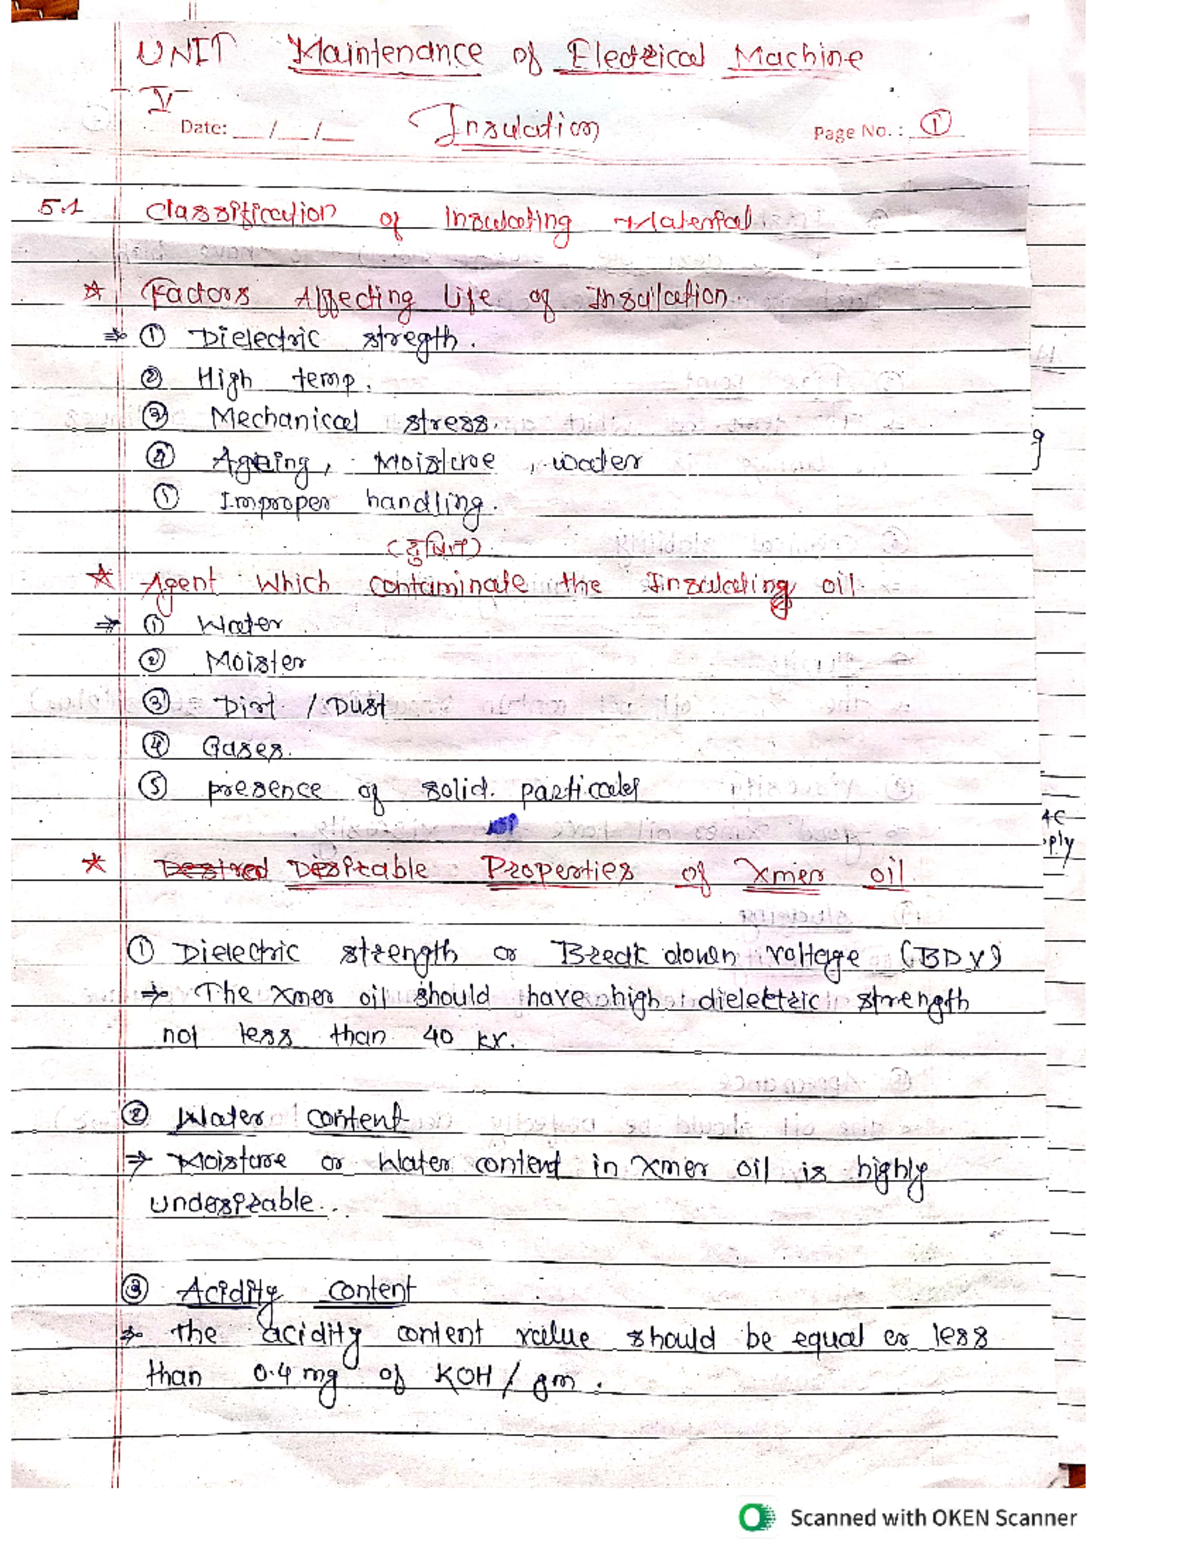 UNIT Maintenance of Electrical Machine
V
Date: __/__/__ Insulation Page No.: 1
5.1 Classification of Insulating Material
☆ Factors Affecting Life of Insulation
⇒ ① Dielectric stregth.
② High temp.
③ Mechanical stress.
④ Ageing, Moisture, water
① Improper handling.
(दुषित)
☆ Agent Which contaminate the Insulating oil.
⇒ ① Water
② Moister
③ Dirt / Dust
④ Gases.
⑤ presence of solid. particales
☆ Desired Desirable Properties of Xmer oil
① Dielectric strength or Break down voltage (BDV)
⇒ The Xmer oil should have high dielectric strength
not less than 40 kv.
② Water content
⇒ Moisture or Water content in Xmer oil is highly
undesirable...
③ Acidity content
⇒ the acidity content value should be equal or less
than 0.4 mg of KOH / gm.
Scanned with OKEN Scanner